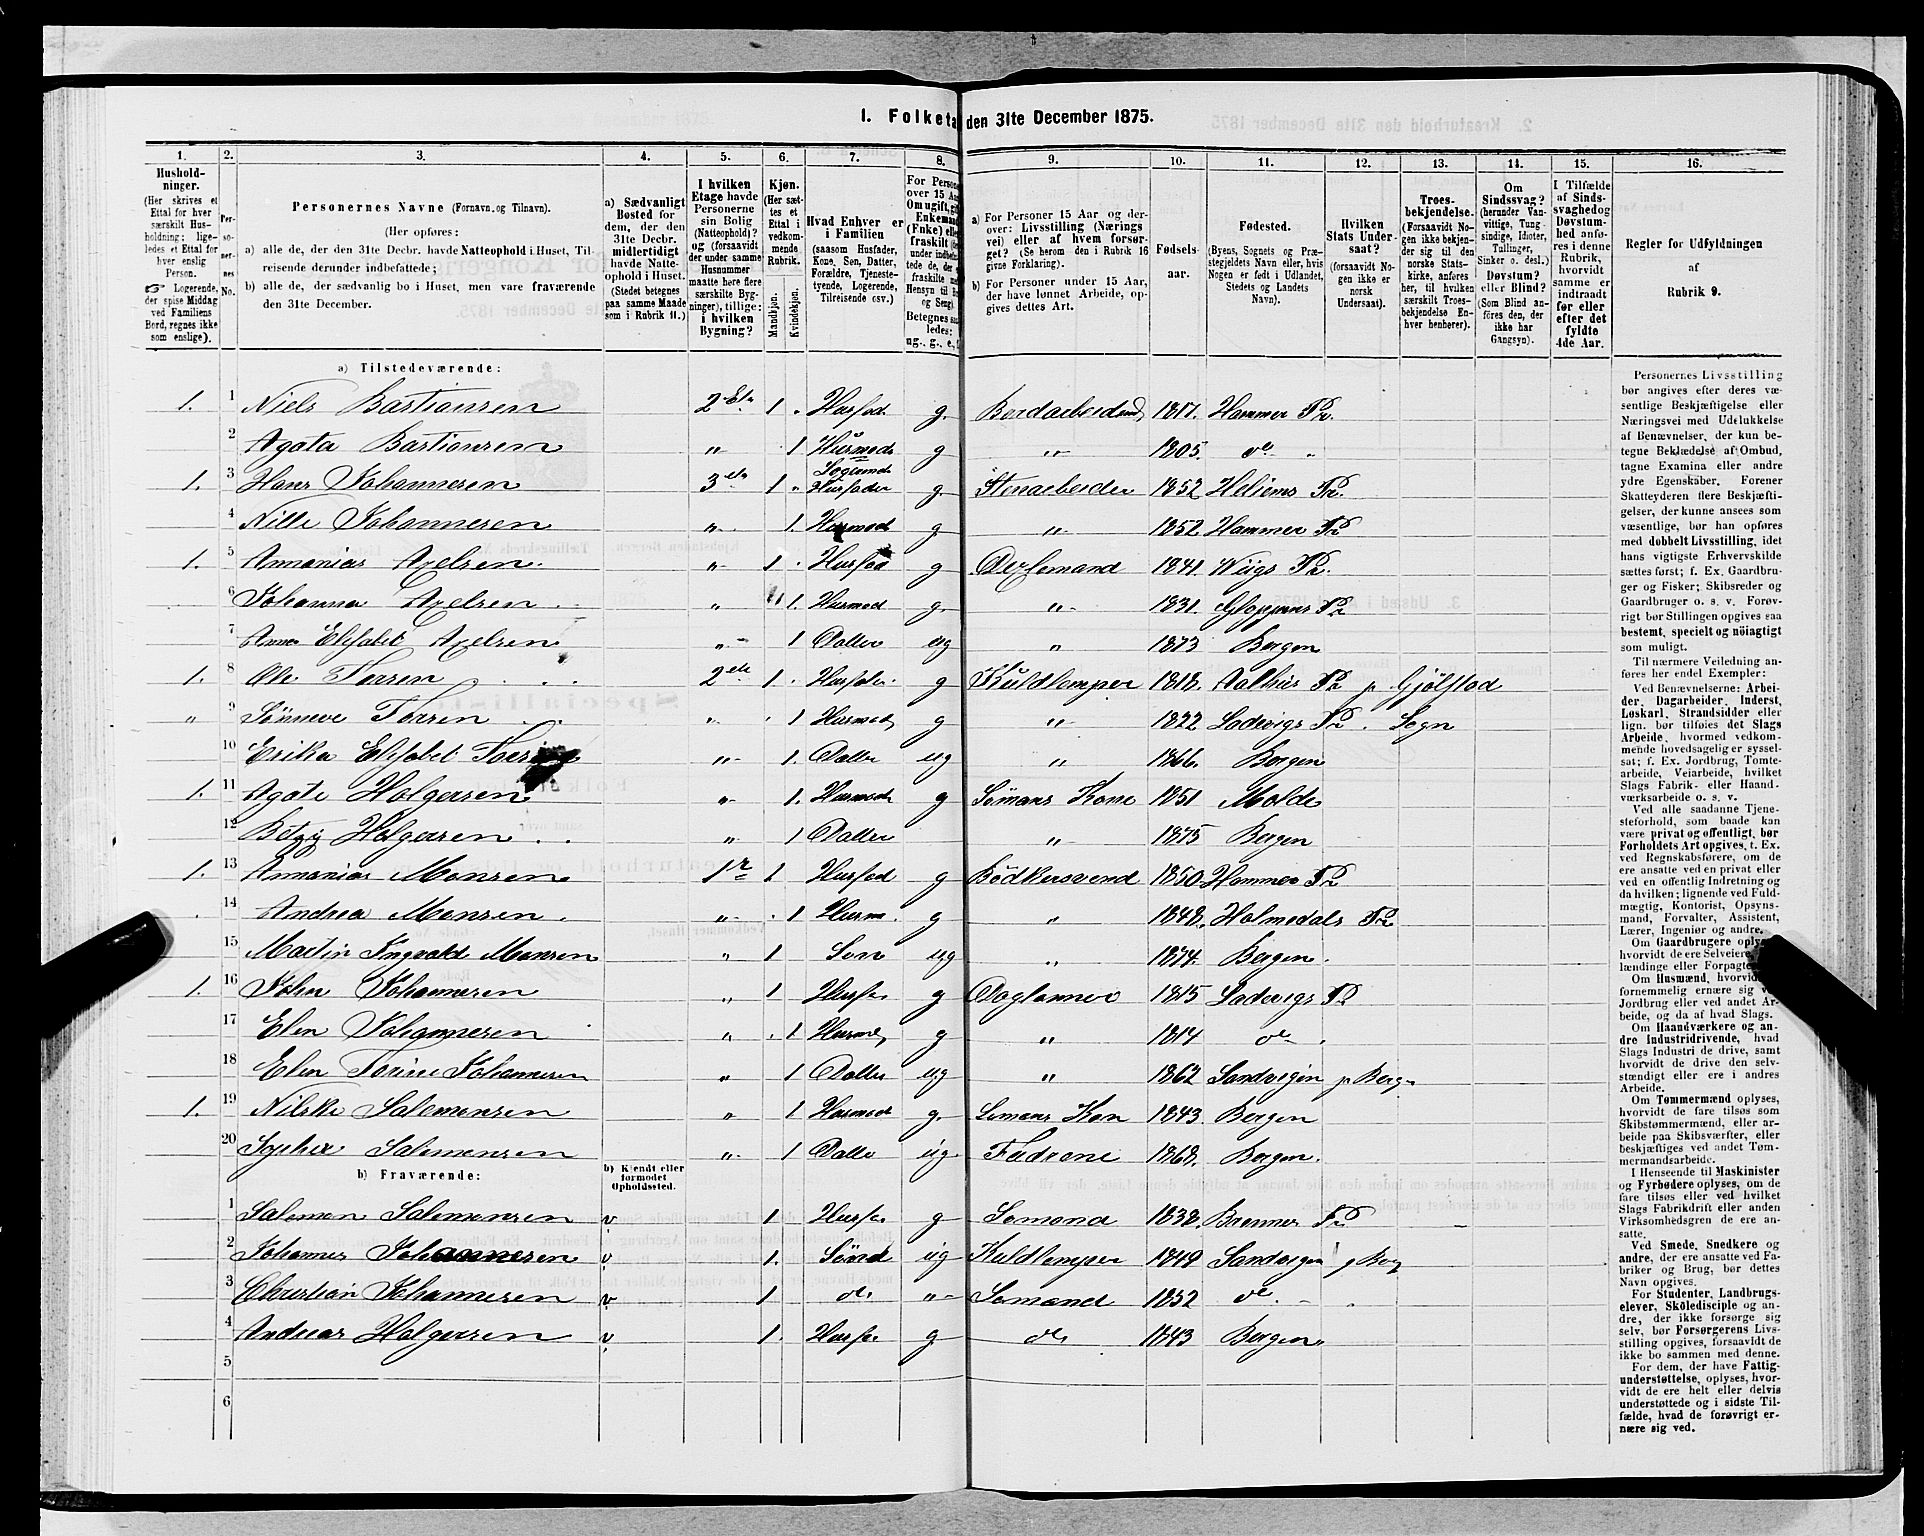 1. Folketa den 31te December 1875.
1. 2. 3. 4. 5. 6. 7. 8. 9. 10. 11. 12. 13. 14. 15. 16.
Hushold-
ninger.
(Her skrives et
Ettal for hver
særskilt Hus-
holdning; lige-
ledes et Ettal for
hver enslig
Person.
☞ Logerende,
der spise Middag
ved Familiens
Bord, regnes ikke
som enslige).
Per-
so-
ner-
nes
No.
Personernes Navne (Fornavn og Tilnavn).
(Her opføres:
a) alle de, der den 31te Decbr. havde Natteophold i Huset, Til-
reisende derunder indbefattede;
b) alle de, der sædvanlig bo i Huset, men vare fraværende
den 31te December.
a) Sædvanligt
Bosted for
dem, der den
31te Decbr.
midlertidigt
havde Natte-
ophold i Huset.
(Stedet betegnes
paa samme Maade
som i Rubrik 11.)
I hvilken
Etage havde
Personerne
sin Bolig
(Natteophold)?
og (forsaavidt
der under samme
Husnummer
maatte høre flere
særskilte Byg-
ninger), tillige:
i hvilken
Bygning?
Kjøn.
(Her sæt-
tes et
Ettal i
vedkom-
mende
Rubrik.
Mandkjøn.
Kvindekjøn.
Hvad Enhver er
i Familien
(saasom Husfader,
Kone, Søn, Datter,
Forældre, Tjeneste-
tyende, Logerende,
Tilreisende osv.)
For Persone
over 15 Aar
Om ugift, gift
Enkemand
(Enke) eller
fraskilt
Betegnes saa-
ledes:
ug., g., e, f.
a) For Personer 15 Aar og der-
over: Livsstilling (Nærings
vei) eller af hvem forsør-
get? (Se herom den i Rubrik 16
givne Forklaring).
b) For Personer under 15 Aar,
der have lønnet Arbeide, op-
gives dettes Art.
Fødsels-
aar.
Fødested.
(Byens, Sognets og Præ-
stegjeldets Navn eller, hvis
Nogen er født i Udlandet,
Stedets og Landets
Navn).
Hvilken
Stats Under-
saat?
(forsaavidt No-
gen ikke er
norsk
Undersaat).
Troes-
bekjendelse.
(Forsaavidt No-
gen ikke bekjen-
der sig til den
norske Stats-
kirke, anføres
her, til hvilken
særskilt Troes-
bekjendelse En-
hver henhører).
Om
Sindssvag?
(herunder Van-
vittige, Tung-
sindige, Idioter,
Tullinger,
Sinker o. desl.)
Døvstum?
eller Blind?
(Som Blind an-
føres den, der
ikke har
Gangsyn).
I Tilfælde
af Sinds-
svaghed og
Døvstum-
hed anfø-
res i denne
Rubrik,
hvorvidt
samme er
indtraadt
før eller
efter det
fyldte
4de Aar.
Regler for Udfyldningen
af
Rubrik 9.
a) Tilstedeværende:
1. 1 Niels Bastiansen 2 Etr 1 Husfad. g. Bordarbeidend 1817. Hammer Pr.
2 Agata Bastiansen " 1 Husmod g " 1805. do "
1. 3 Hans Johannesen 3 etr 1 " Logerend Husfader g. Stenarbeider 1852 Heliems Pr.
4 Nille Johannesen " 1. Husmod g " 1852 Hammer Pr
1. 5 Annanias Axelsen " 1 Husfad g Dexlemand 1841. Wiigs Pr.
6 Johanna Axelsen " 1. Husmod g. " 1831. Gloppens Pr
7 Anna Elisabet Axelsen " 1 Datter ug " 1873 Bergen
1. 8 Ole Torsen 2 etr 1. Husfader g Kuldlemper 1818. Aalhus Pr p Gjølstad
" 9 Sønneve Torsen " 1 Husmod g " 1822 Ladvigs Pr. Sogn
10 Erika Elisabet Torsen " 1. Datter ug " 1866. Bergen
1. 11 Agate Holgersen " 1. Husmod g Sømans Kone 1851 Molde
12 Betzy Holgersen " 1 Datter " 1875 Bergen
1. 13 Annanias Monsen 1 r 1 Husfad g Bødkersvend 1850. Hammer Pr
14 Andrea Monsen " 1 Husm. g " 1848. Holmedals Pr
15 Martin Ingvald Monsen " 1 Søn ug " 1874. Bergen.
1. 16 John Johannesen " 1 Husfa g Daglonner 1815 Ladvigs Pr
17 Elen Johannesen " 1 Husmd g " 1814 do
18 Elen Torine Johannesen " 1 Datter ug " 1862 Sandvigen p Berg
1. 19 Nilske Salemonsen " 1 Husmod g. Sømans Kon 1843. Bergen
20 Sophie Salemonsen " 1 Datte ug Fadrene 1868. Bergen.
b) Fraværende:
b) Kjendt eller
formodet
Opholdssted.
1 Salemon Salemonsen v 1 Husfa g Sømand 1838. Bremnes Pr
2 Johannes Johannesen v 1. Sønd ug Kuldlemper 1849 Sandvigen p Berg
3 Christian Johannesen v 1 do " Sømand 1852 do
4 Andreas Holgersen v 1. Husfa g do 1843 Bergen
5
6
Personernes Livsstilling
bør angives efter deres væ-
sentlige Beskjæftigelse eller
Næringsvei med Udelukkelse
af Benævnelser, der kun be-
tegne Beklædelse af Ombud,
tagne Examina eller andre
ydre Egenskaber. Forener
Skatteyderen flere Beskjæfti-
gelser, der kunne ansees som
væsentlige, bør han opføres
med dobbelt Livsstilling, idet
hans vigtigste Erhvervskilde
sættes først; f. Ex. Gaardbru-
ger og Fisker; Skibsreder og
Gaardbruger o. s. v. Forøv-
rigt bør Stillingen opgives saa
bestemt, specielt og nöiagtigt
som muligt.
Til nærmere Veiledning an-
føres her endel Exempler:
Ved Benævnelserne: Arbei-
der, Dagarbeider, Inderst,
Løskarl, Strandsidder eller
lign. bør tilføies det Slags
Arbeide, hvormed vedkom-
mende hovedsagelig er syssel-
sat; f. Ex. Jordbrug, Tomte-
arbeide, Veiarbeide, hvilket
Slags Fabrik- eller Haand-
værksarbeide o. s. v.
Ved alle saadanne Tjene-
steforhold, som baade kan
være privat og offentligt, bør
Forholdets Art opgives, t. Ex.
ved Regnskabsførere, om de
ere ansatte ved en privat eller
ved en offentlig Indretning og
da hvilken; lignende ved Fuld-
mægtig, Kontorist, Opsyns-
mand, Forvalter, Assistent,
Lærer, Ingeniør og andre.
Om Gaardbrugere oplyses,
hvorvidt de ere Selveiere,
lændinge eller Forpagtere.
Om Husmænd, hvorvidt
fornemmelig ernære sig ved
Jordbrug eller ved andet Ar-
beide, og da af hvad Slags.
Om Haandværkere og an-
dre Industridrivende, hvad
Slags Industri de drive, samt
hvorvidt de drive den selv-
stændigt eller ere i andres
Arbeide.
Om Tømmermænd oplyses,
hvorvidt de fare tilsøs som
Skibstømmermænd, eller ar-
beide paa Skibsværfter, eller
beskjæftiges ved andet Tøm-
mermandsarbeide.
I Henseende til Maskinister
og Fyrbødere oplyses, om de
fare tilsøs eller ved hvilket
Slags Fabrikdrift eller anden
Virksomhedsgren de ere an-
satte.
Ved Smede, Snedkere og
andre, der ere ansatte ved Fa-
briker og Brug, bør dettes
Navn opgives.
For Studenter, Landbrugs-
elever, Skoledisciple og an-
dre, der ikke forsørge sig
selv, bør Forsørgerens Livs-
stilling opgives, forsaavidt de
ikke bo sammen med denne.
For dem, der have Fattig-
understøttelse, oplyses, hvor-
vidt de ere helt eller delvis
understøttede og i sidste Til-
fælde, hvad de forøvrigt er-
nære sig ved.